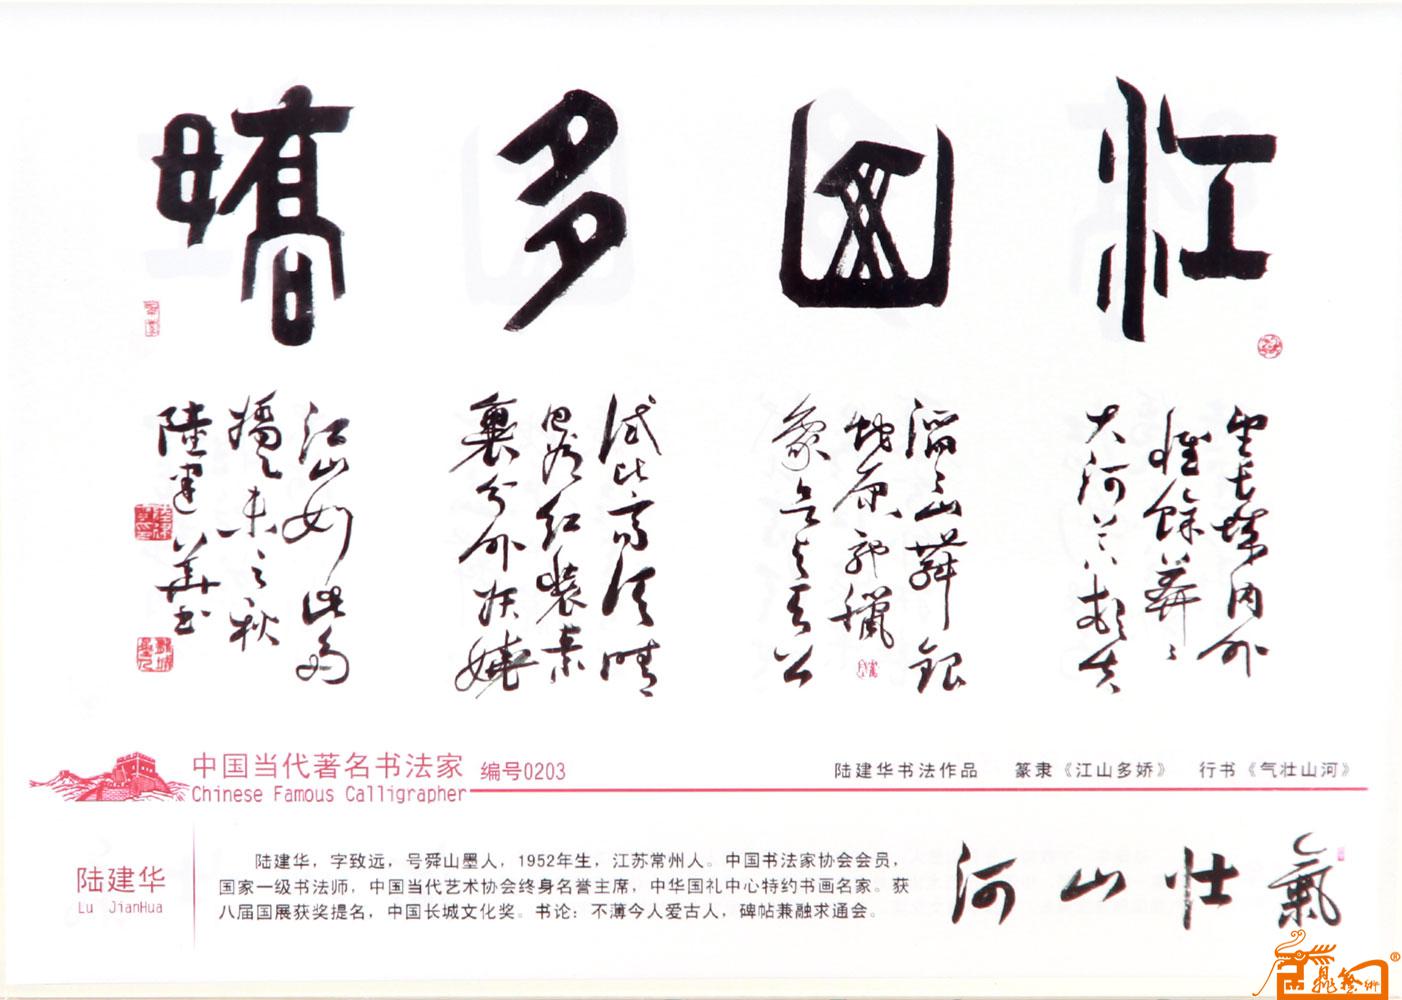 江山多嬌
望長城内外
惟餘莽々
大河上下頓失
滔々山舞銀
蛇原馳蠟
象欲与天公
試比高須晴
日看紅裝素
裹分外妖嬈
江山如此多
嬌乙未之秋
陸建華书
中国当代著名书法家 编号0203
Chinese Famous Calligrapher
陆建华书法作品 篆隶《江山多娇》 行书《气壮山河》
陆建华
Lu JianHua
陆建华，字致远，号舜山墨人，1952年生，江苏常州人。中国书法家协会会员，
国家一级书法师，中国当代艺术协会终身名誉主席，中华国礼中心特约书画名家。获
八届国展获奖提名，中国长城文化奖。书论：不薄今人爱古人，碑帖兼融求通会。
氣壮山河